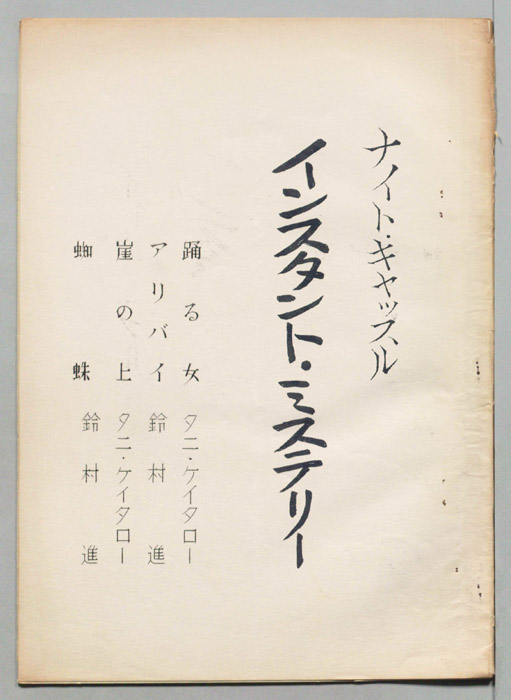 ナイト・キャッスル
インスタント・ミステリー
踊る女 タニ・ケイタロー
アリバイ 鈴村進
崖の上 タニ・ケイタロー
蜘蛛 鈴村進